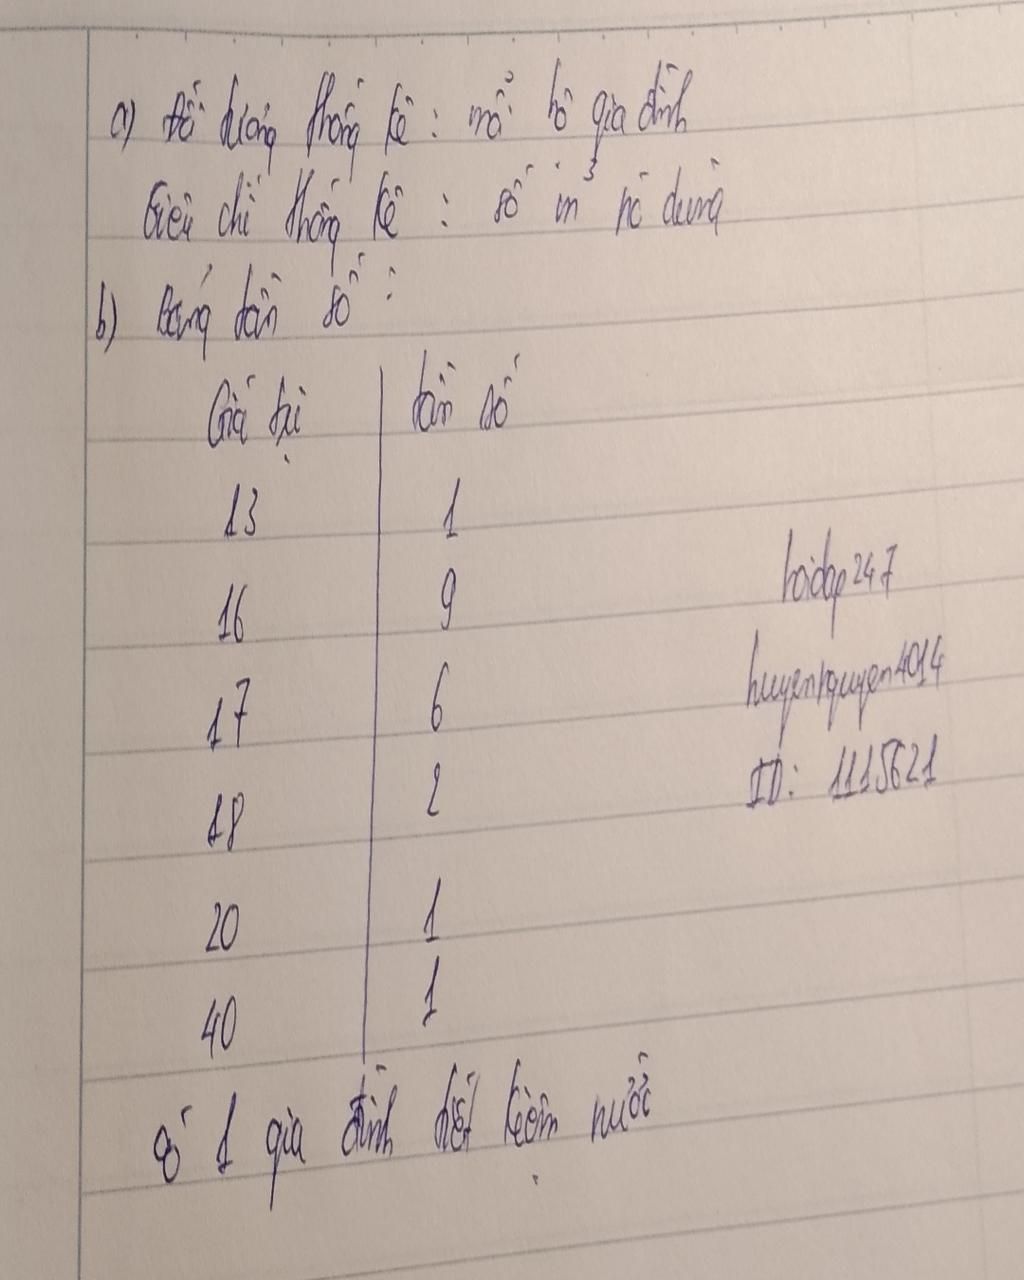 a) Đối tượng thống kê : mỗi hộ gia đình
Tiêu chí thống kê : số m³ nó dùng
b) Bảng tần số :
Giá trị | tần số
13 | 1
16 | 9
17 | 6
18 | 2
20 | 1
40 | 1
hoidap247
huyennguyen4014
ID: 1115621
1 gia đình tiết kiệm nước